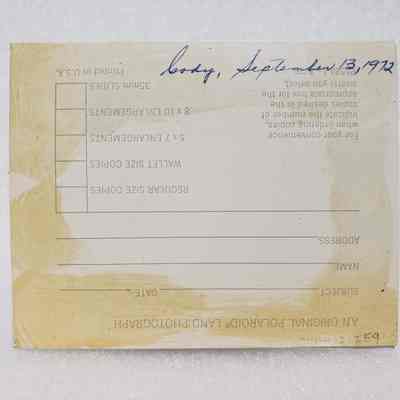 Cody, September 13, 1972
AN ORIGINAL POLAROID® LAND PHOTOGRAPH
SUBJECT DATE
NAME
ADDRESS
REGULAR SIZE COPIES
WALLET SIZE COPIES
5 x 7 ENLARGEMENTS
8 x 10 ENLARGEMENTS
35mm SLIDES
For your convenience
when ordering copies,
indicate the number of
copies desired in the
appropriate box for the
Printed in U.S.A.